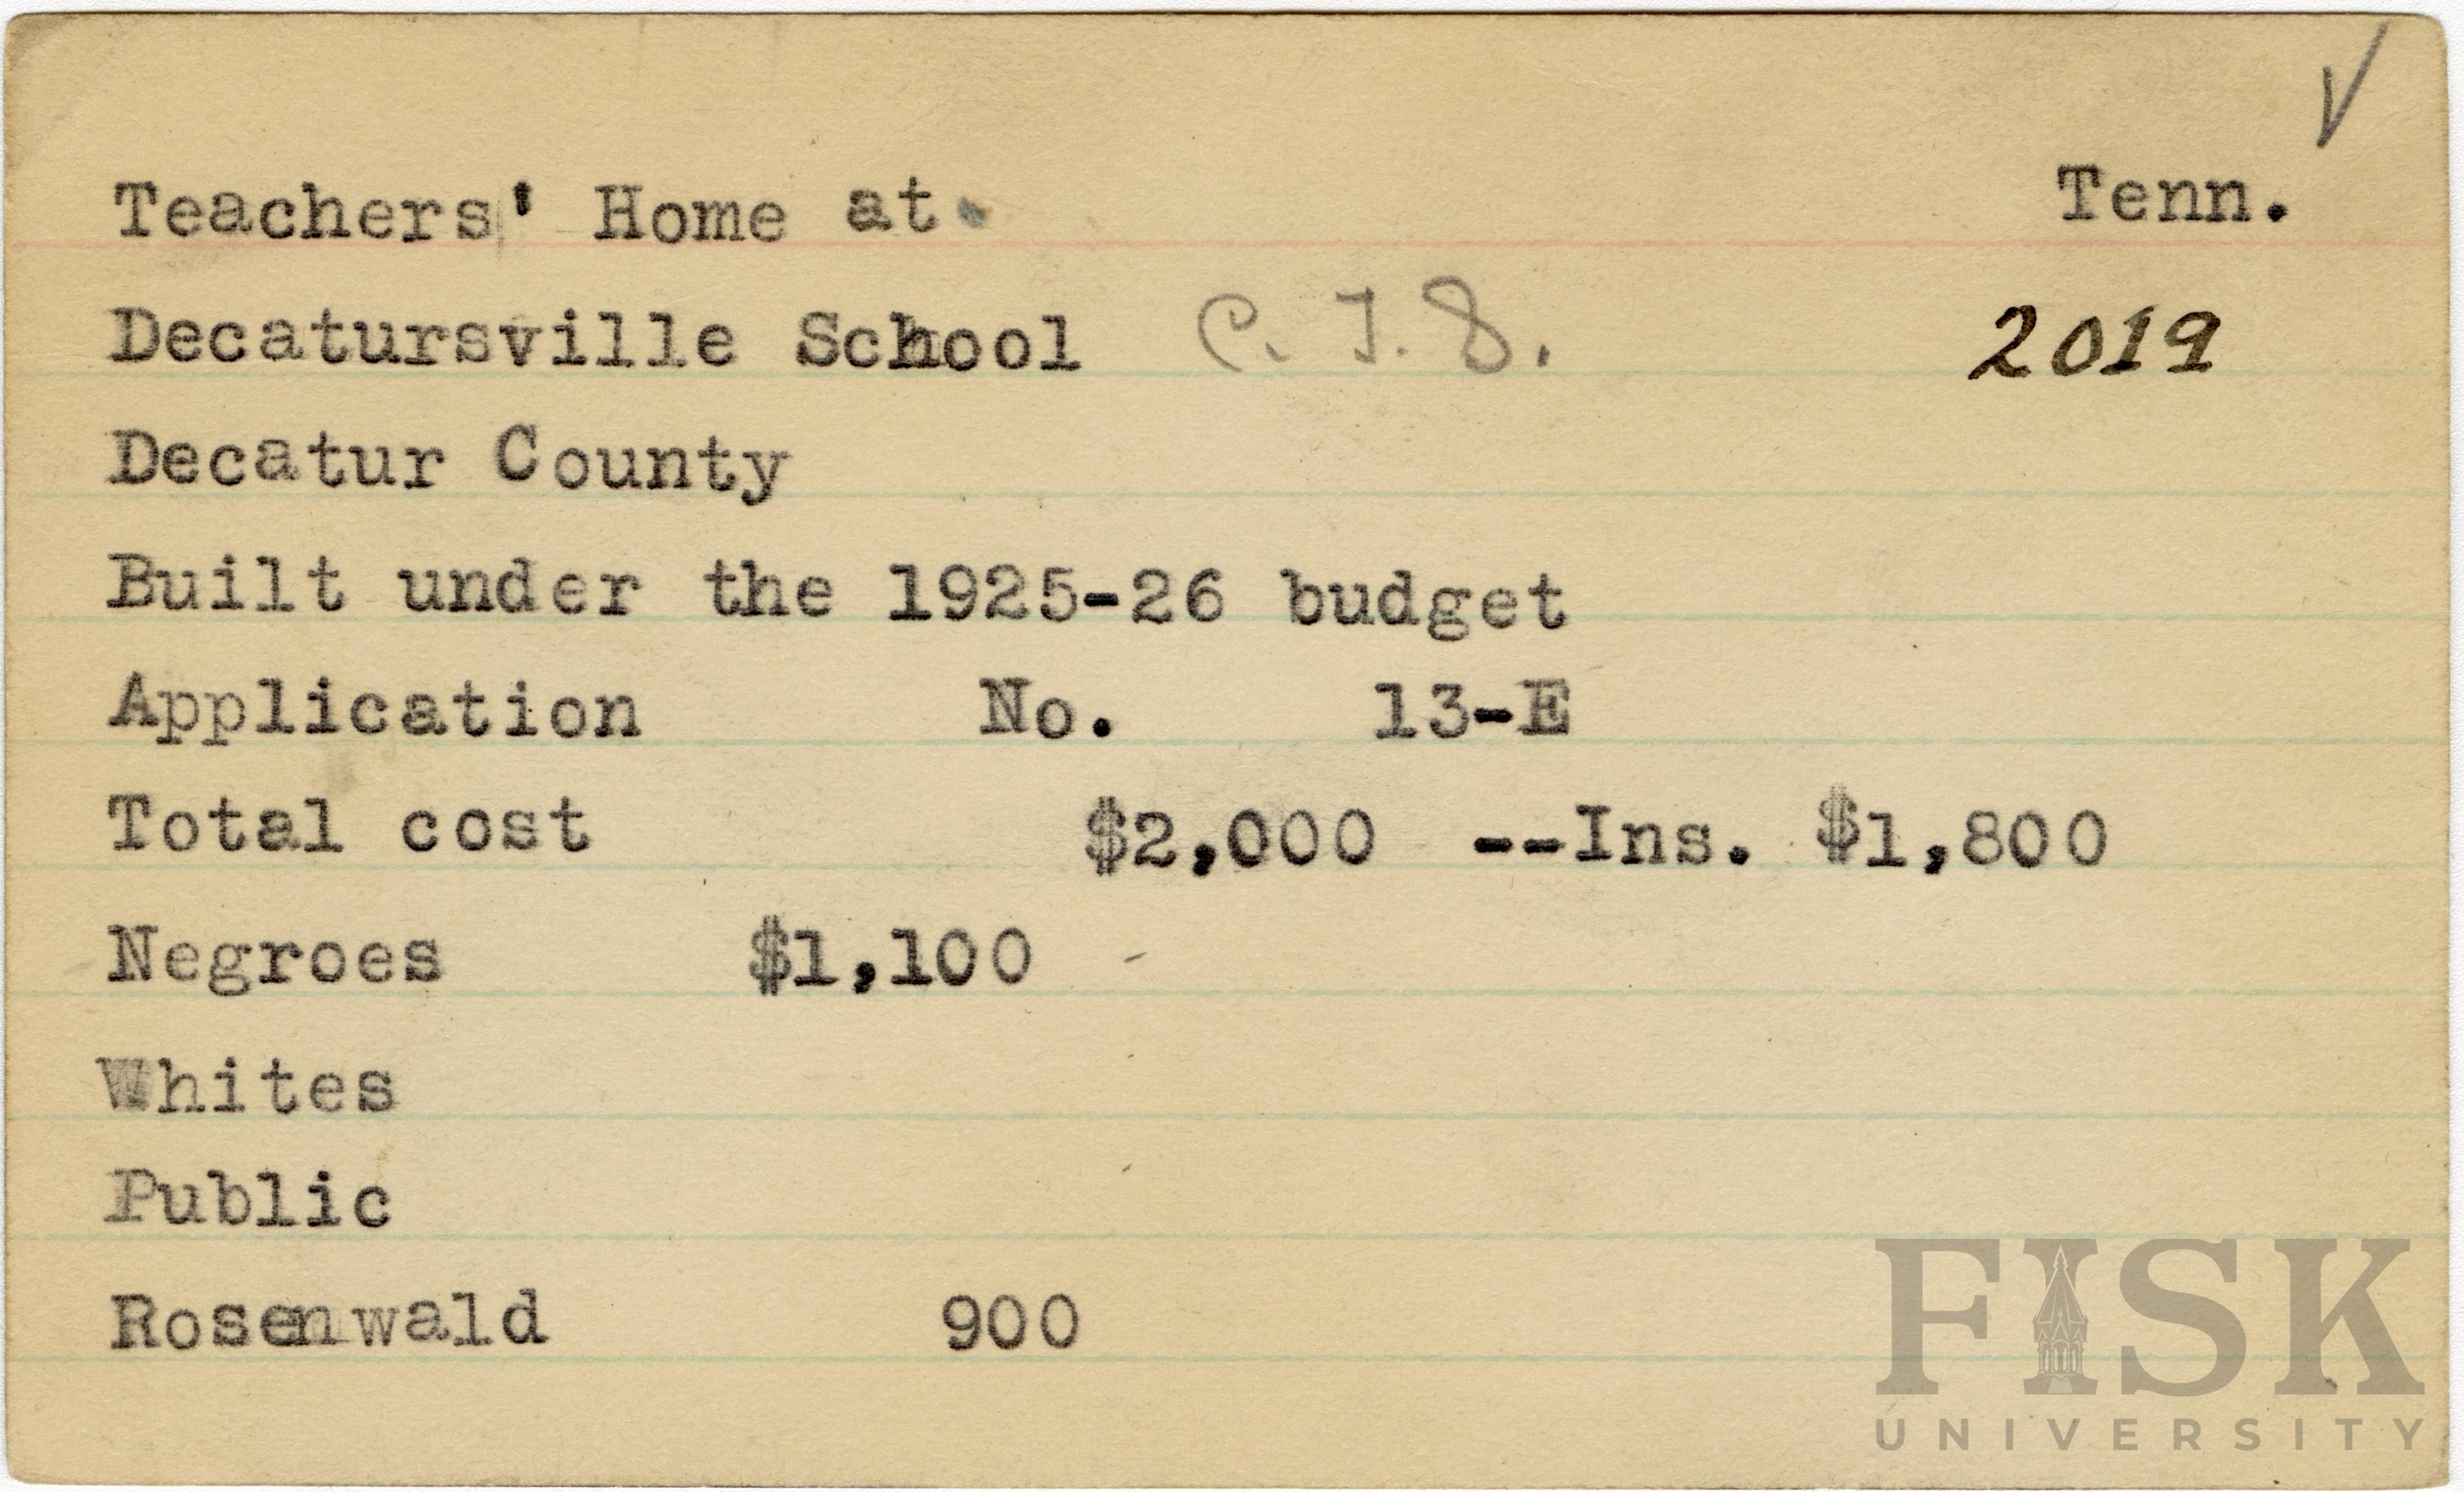 Teachers' Home at. Tenn.
Decatursville School C. T. S. 2019
Decatur County
Built under the 1925-26 budget
Application No. 13-E
Total cost $2,000 --Ins. $1,800
Negroes $1,100
Whites
Public
Rosenwald 900
FISK
UNIVERSITY